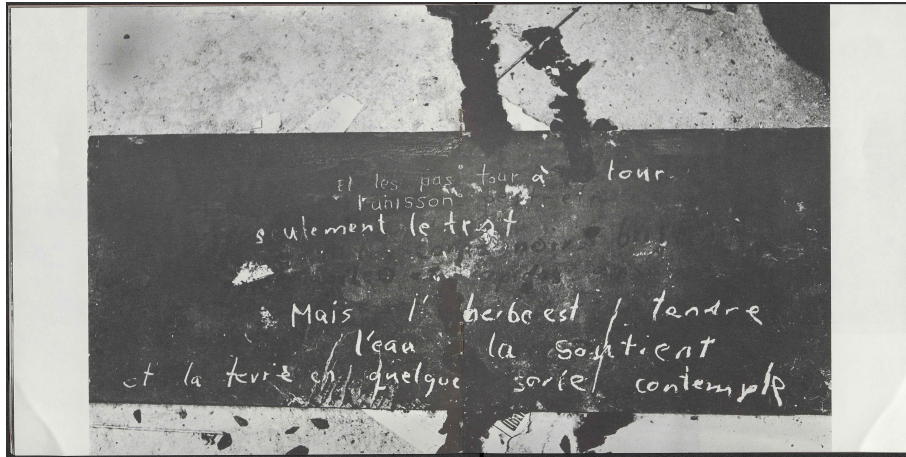 Et les pas tour à tour
l'unisson
seulement le trot
Mais l'herbe est tendre
l'eau la soutient
et la terre en quelque sorte contemple